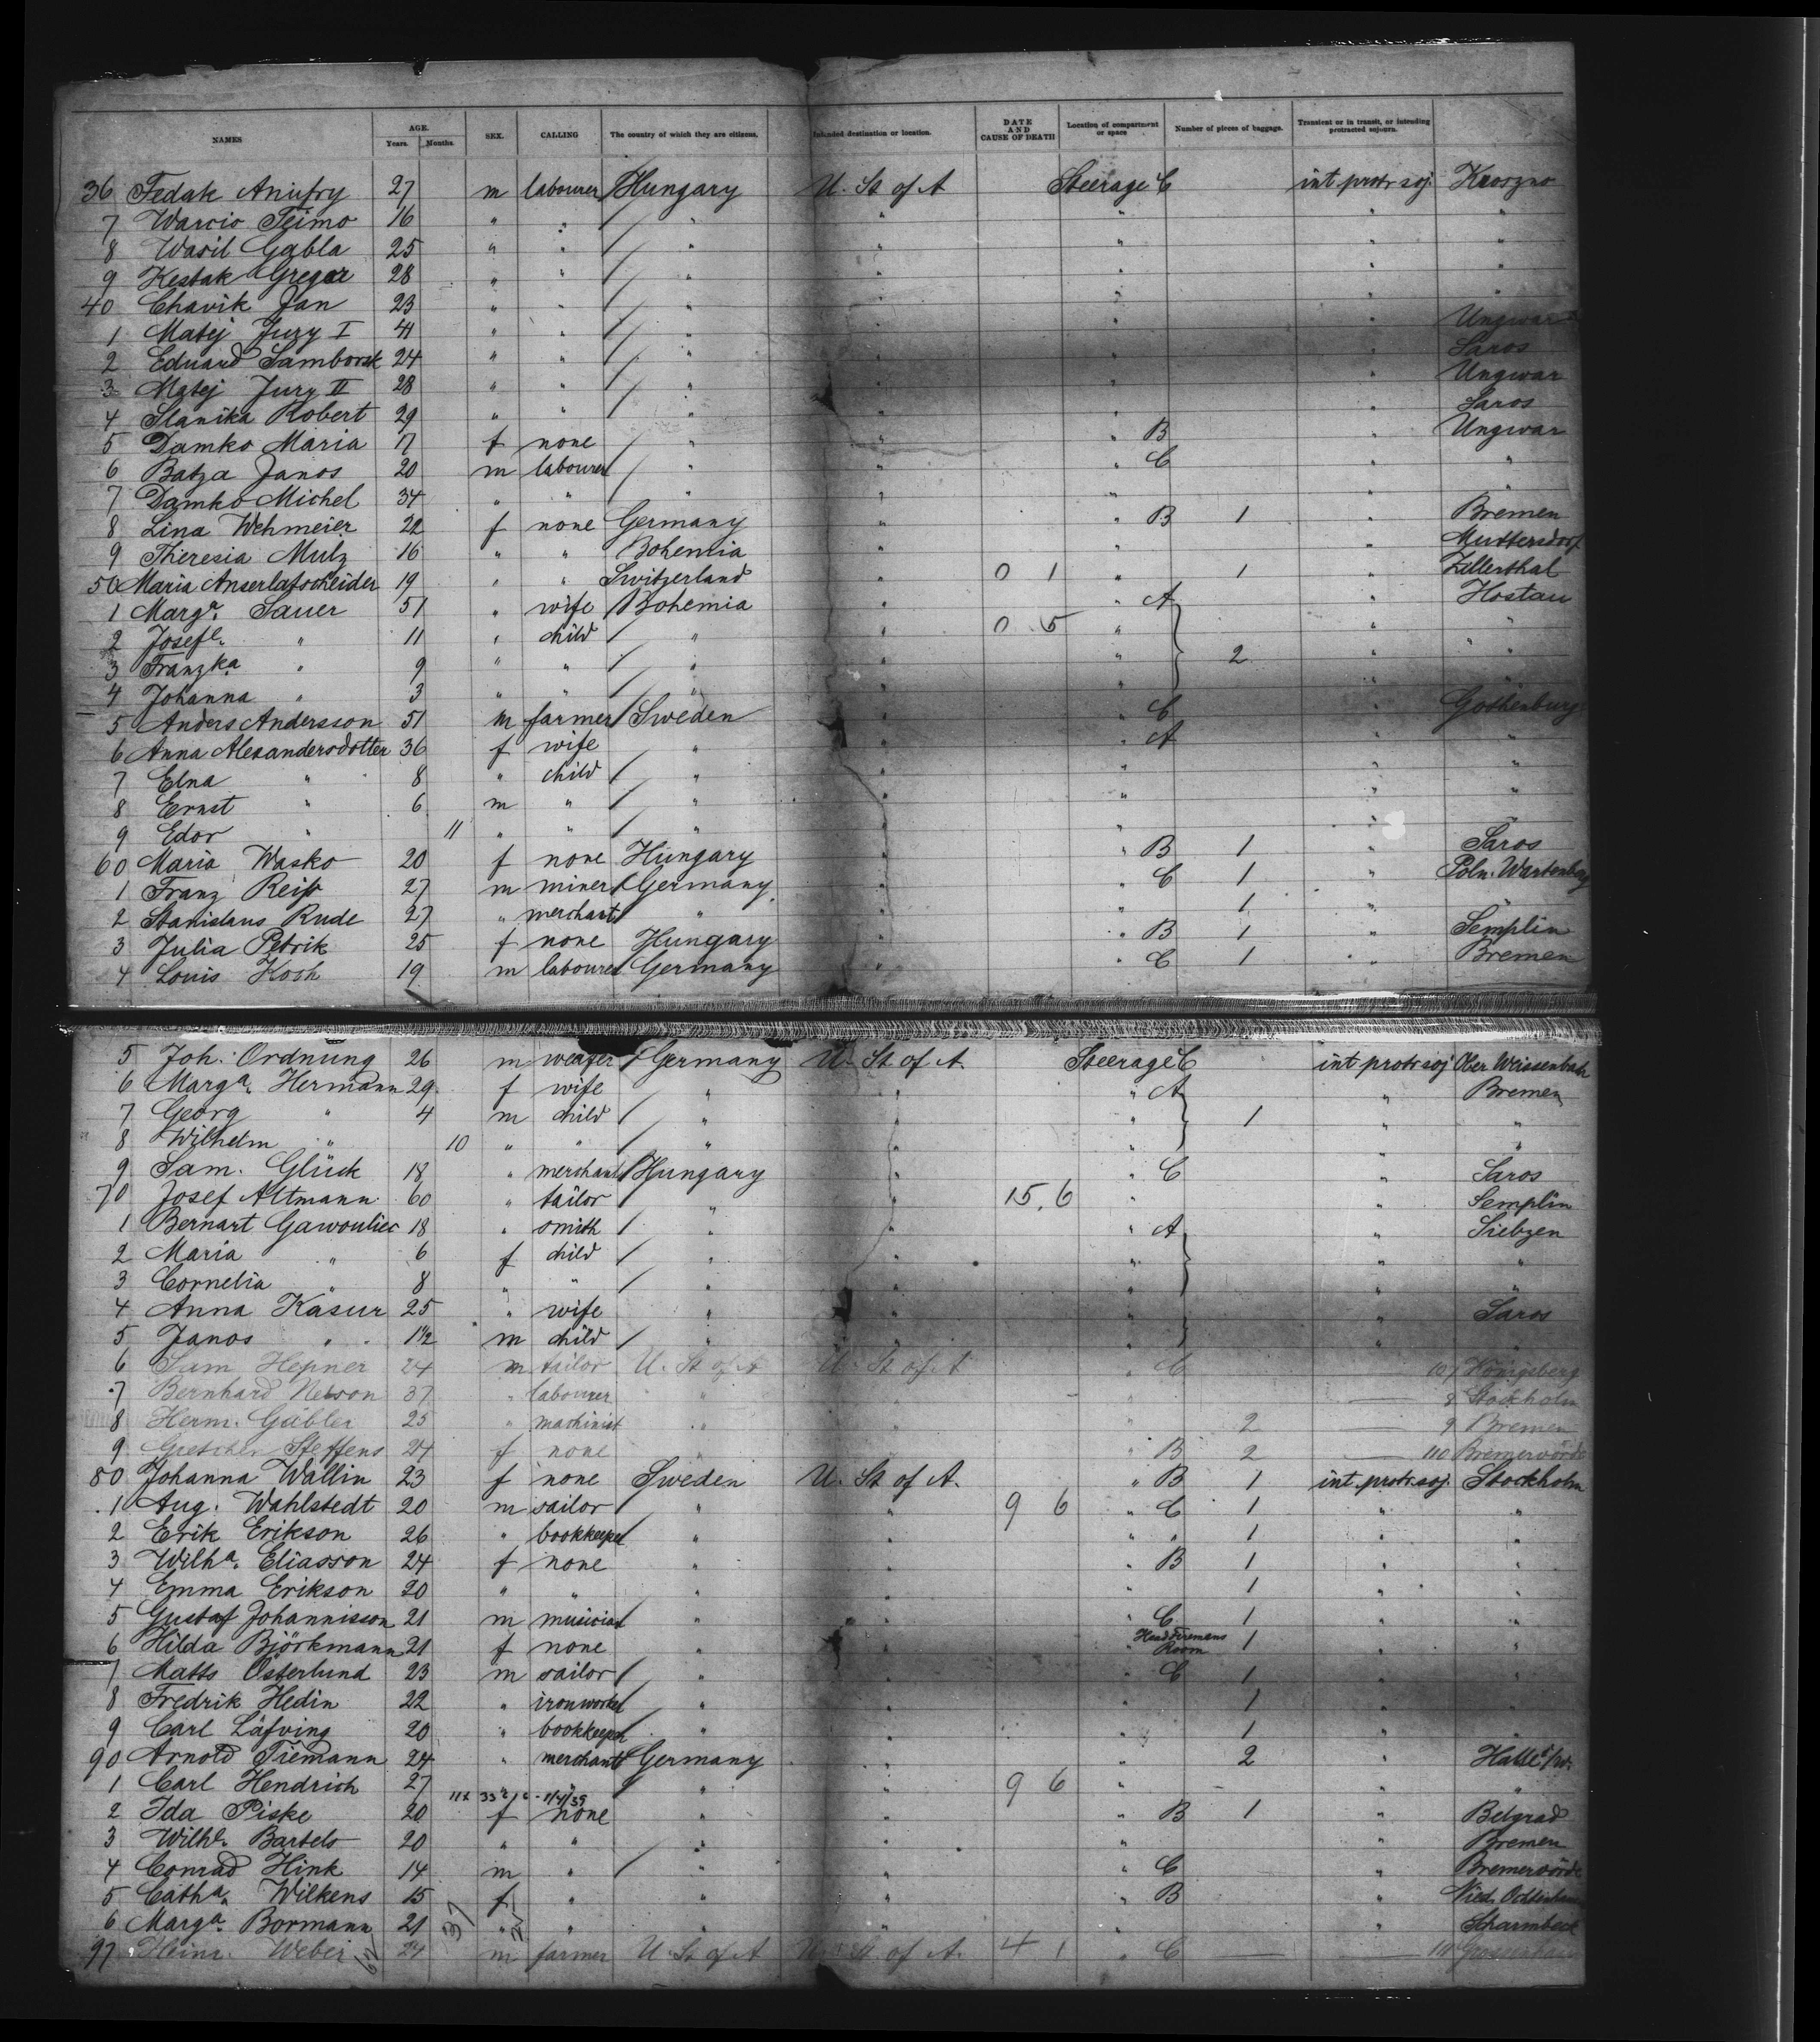 NAMES AGE. Years. Months. SEX. CALLING The country of which they are citizens. Intended destination or location. DATE AND CAUSE OF DEATH Location of compartment or space Number of pieces of baggage. Transient or in transit, or intending protracted sojourn.
36 Fedak Anufry 27 m labourer Hungary U. St of A Steerage C int protr soj. Kroszno
7 Warcio Teimo 16 " " " " " " "
8 Wasil Gabla 25 " " " " " " "
9 Kestak Gregor 28 " " " " " " "
40 Chavik Jan 23 " " " " " " "
1 Matej Jury I 41 " " " " " " Ungwar
2 Eduard Samborsk 24 " " " " " " Saros
3 Matej Jury II 28 " " " " " " Ungwar
4 Slanika Robert 29 " " " " " " Saros
5 Damko Maria 17 f none " " " B " Ungwar
6 Batza Janos 20 m labourer " " " C " "
7 Damko Michel 34 " " " " " " "
8 Lina Wehmeier 22 f none Germany " " B 1 " Bremen
9 Theresia Mulz 16 " " Bohemia " " Muttersdorf
50 Maria Anserlatscheider 19 " " Switzerland " 0 1 " 1 " Zillerthal
1 Marga. Sauer 51 " wife Bohemia " " A " Hostau
2 Josefe. " 11 " child " " 0 5 " " "
3 Franzka " 9 " " " " " 2 " "
4 Johanna " 3 " " " " " " "
5 Anders Andersson 51 m farmer Sweden " " C " Gothenburg
6 Anna Alexandersdotter 36 f wife " " " A " "
7 Elna " 8 " child " " " " "
8 Ernst " 6 m " " " " " "
9 Edor " 11 " " " " " " "
60 Maria Wasko 20 f none Hungary " " B 1 " Saros
1 Franz Reiss 27 m miner Germany " " C 1 " Poln. Wartenberg
2 Stanislaus Rude 27 " merchant " " " 1 " "
3 Julia Petrik 25 f none Hungary " " B 1 " Semplin
4 Louis Koch 19 m labourer Germany " " C 1 " Bremen
5 Joh. Ordnung 26 m weafer Germany U. St of A. Steerage C int protr soj Ober Weissenbach
6 Marga. Hermann 29 f wife " " " A " Bremen
7 Georg " 4 m child " " " 1 " "
8 Wilhelm " 10 " " " " " " "
9 Sam. Glück 18 " merchant Hungary " " C " Saros
70 Josef Altmann 60 " tailor " " 15. 6 " " Semplin
1 Bernart Gawouliec 18 " smith " " " A " Siebzen
2 Maria " 6 f child " " " " "
3 Cornelia " 8 " " " " " " "
4 Anna Kasur 25 " wife " " " " Saros
5 Janos " 1½ m child " " " " "
6 Sam Hepner 24 m tailor U. St of A U. St of A " C 107 Königsberg
7 Bernhard Nelson 37 " labourer " " " 8 Stockholm
8 Herm. Gäbler 25 " machinist " " " 2 9 Bremen
9 Gretchen Steffens 24 f none " " " B 2 110 Bremervörde
80 Johanna Wallin 23 f none Sweden U. St of A. " B 1 int. protr. soj. Stockholm
1 Aug. Wahlstedt 20 m sailor " " 9 6 " C 1 " "
2 Erik Erikson 26 " bookkeeper " " " " 1 " "
3 Wilha. Eliasson 24 f none " " " B 1 " "
4 Emma Erikson 20 " " " " " 1 " "
5 Gustaf Johannisson 21 m musician " " " C 1 " "
6 Hilda Björkmann 21 f none " " " Head Firemans Room 1 " "
7 Matts Österlund 23 m sailor " " " C 1 " "
8 Fredrik Hedin 22 " ironworker " " " 1 " "
9 Carl Läfving 20 " bookkeeper " " " 1 " "
90 Arnold Tiemann 24 " merchant Germany " " 2 " Halle i/W.
1 Carl Hendrich 27 " " " " 9 6 " – " "
2 Ida Piske 20 f none " " " B 1 " Belgrad
3 Wilhe. Bartels 20 " " " " " " Bremen
4 Conrad Hink 14 m " " " " C " Bremervörde
5 Catha. Wilkens 15 f " " " " B " Nied. Ochtenhausen
6 Marga. Bormann 21 " " " " " " Scharmbeck
97 Heinr. Weber 24 m farmer U. St of A U. St. of A. 4 1 " C 111